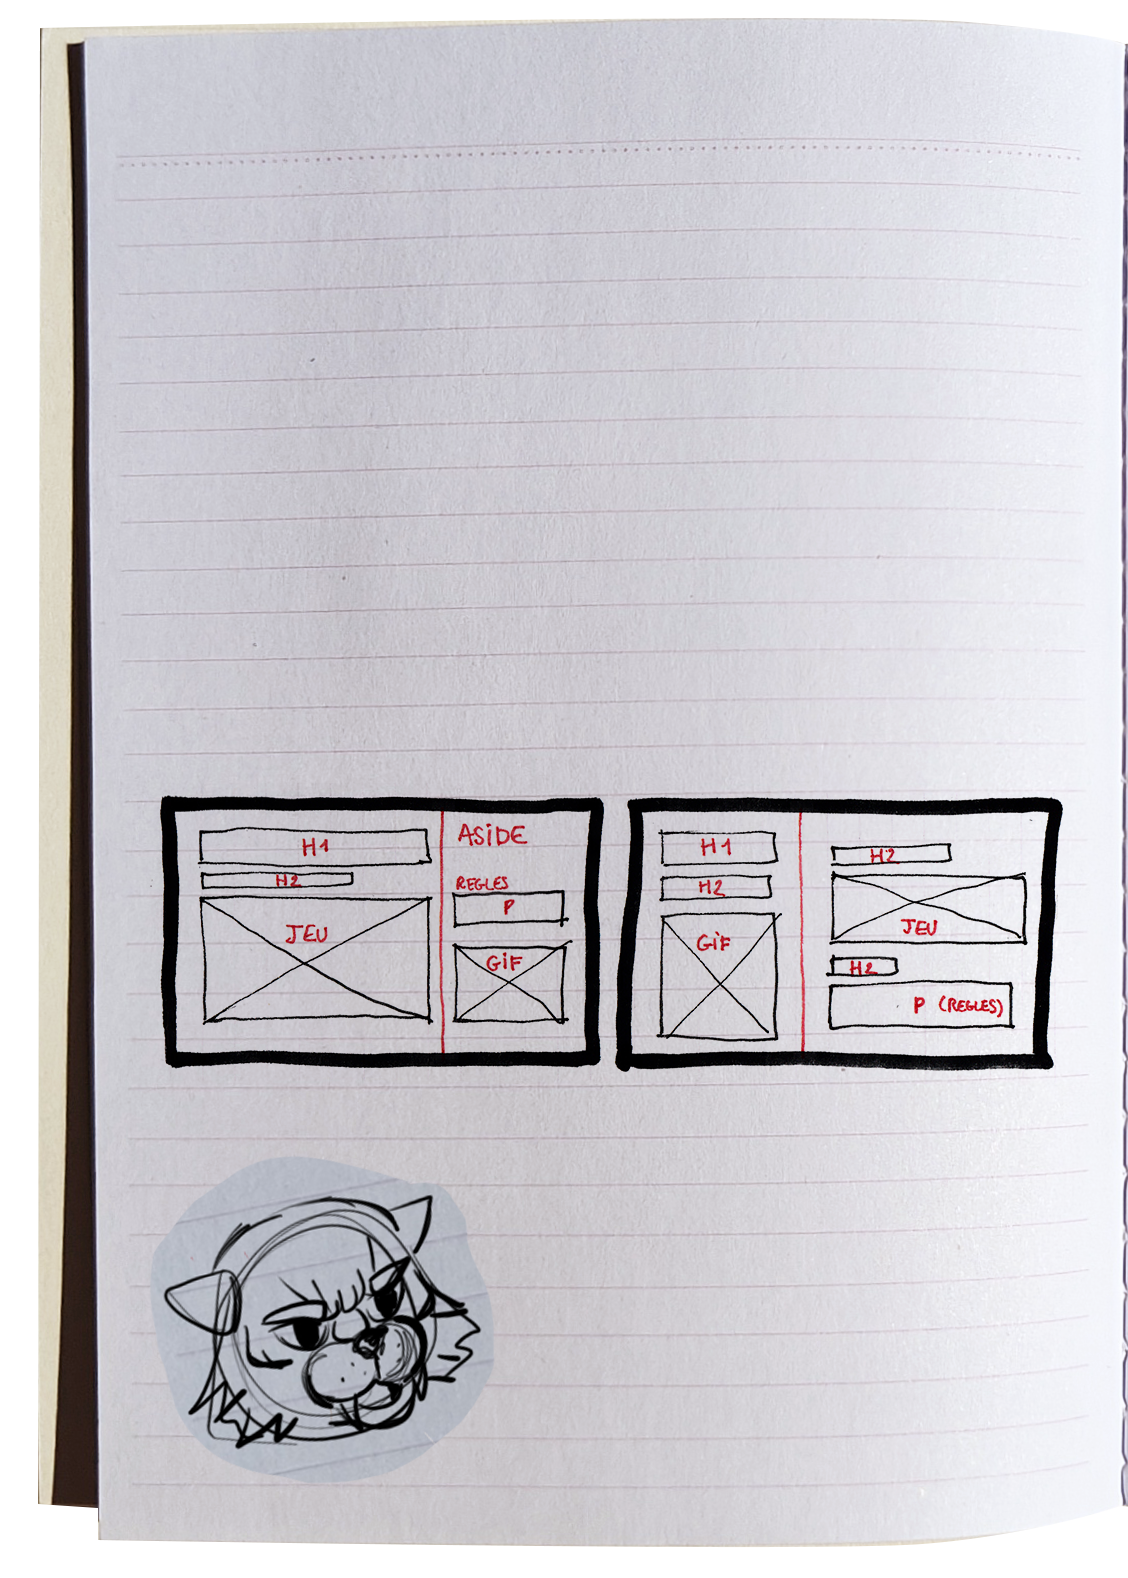 H1
H2
JEU
ASIDE
REGLES
P
GIF
H1
H2
GIF
H2
JEU
H2
P (REGLES)